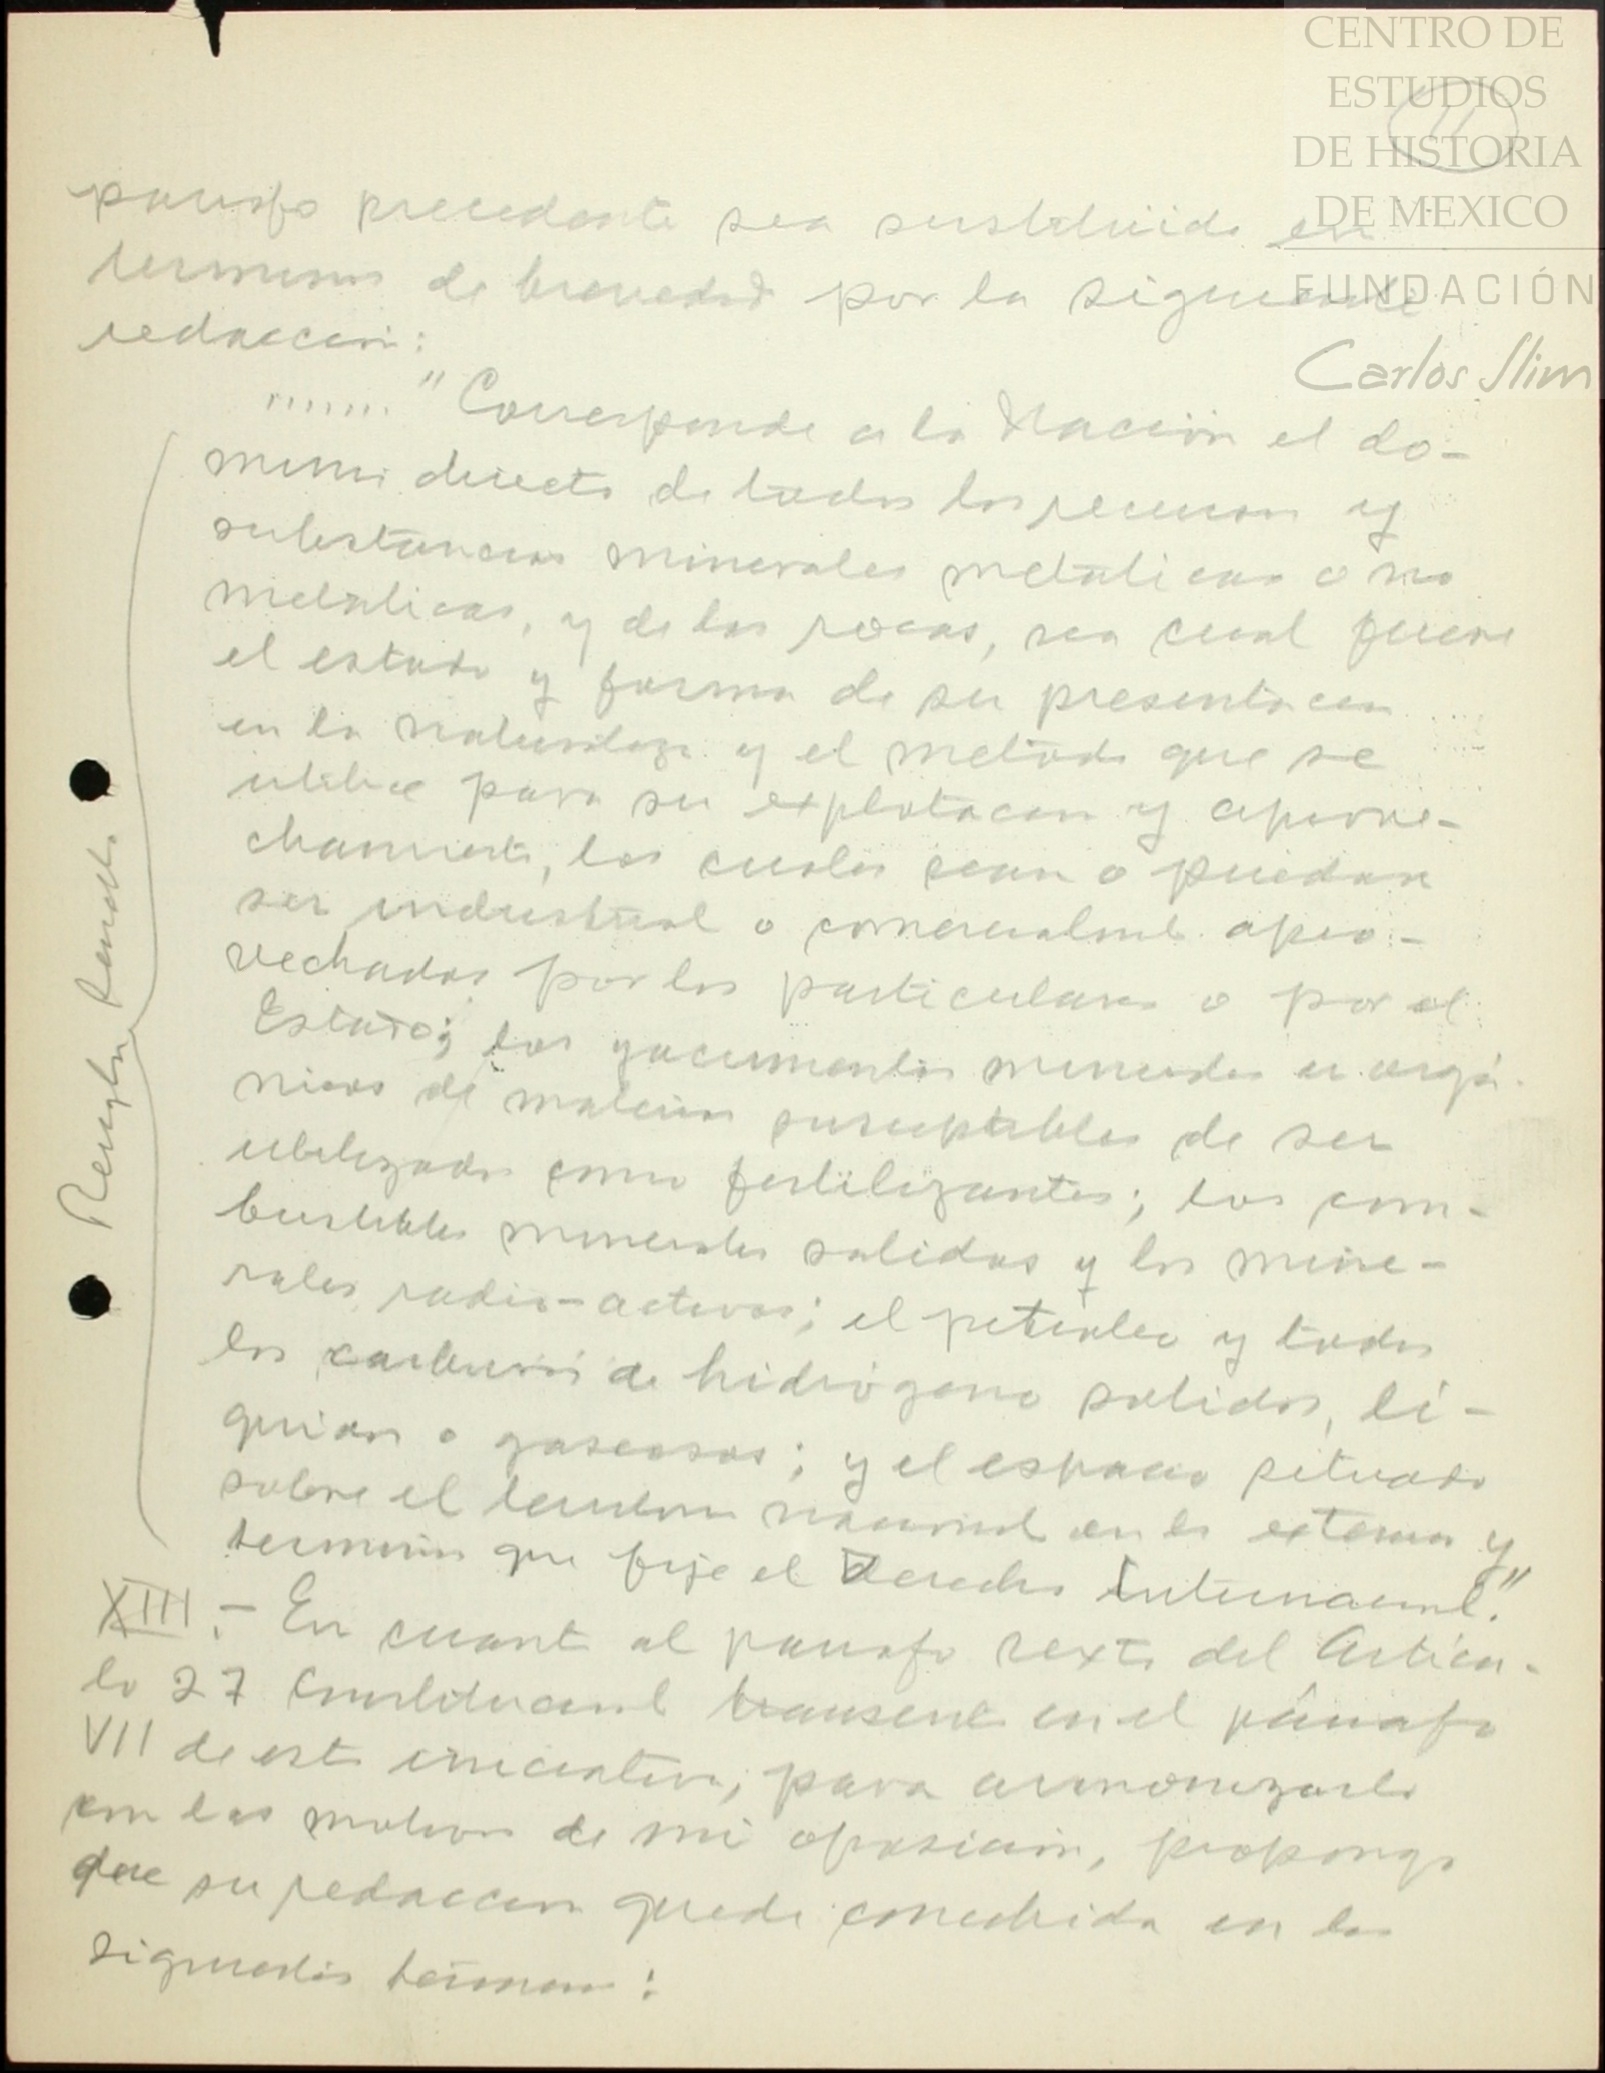 CENTRO DE
ESTUDIOS
DE HISTORIA
DE MEXICO
FUNDACIÓN
Carlos Slim
11
parrafo precedente sea sustituido en
terminos de brevedad por la siguiente
redaccion:
....... "Corresponde a la Nación el do-
minio directo de todos los recursos y
substancias minerales metalicas o no
metalicas, y de las rocas, sea cual fuere
el estado y forma de su presentacion
en la naturaleza y el metodo que se
utilice para su explotacion y aprove-
chamiento, los cuales sean o puedan
ser industrial o comercialmente apro-
vechados por los particulares o por el
Estado; los yacimientos minerales u orgá-
nicos de materias susceptibles de ser
utilizadas como fertilizantes; los com-
bustibles minerales solidos y los mine-
rales radio-activos; el petroleo y todos
los carburos de hidrógeno solidos, lí-
quidos o gaseosos; y el espacio situado
sobre el territorio nacional en la extension y
terminos que fije el Derecho Internacional."
Renglon Renado
XIII.- En cuanto al parrafo sexto del Artícu-
lo 27 Constitucional transcrito en el párrafo
VII de esta iniciativa, para armonizarlo
con los motivos de mi oposicion, propongo
que su redaccion quede concebida en los
siguientes términos: